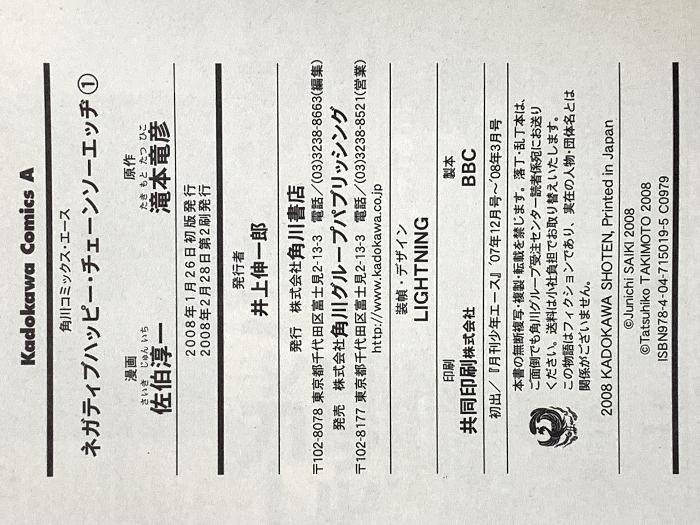 Kadokawa Comics A
角川コミックス・エース
ネガティブハッピー・チェーンソーエッヂ①
漫画 原作
さいき じゅんいち たきもと たつひこ
佐伯淳一 滝本竜彦
2008年1月26日初版発行
2008年2月28日第2刷発行
発行者
井上伸一郎
発行 株式会社角川書店
〒102-8078 東京都千代田区富士見2-13-3 電話／(03)3238-8663(編集)
発売 株式会社角川グループパブリッシング
〒102-8177 東京都千代田区富士見2-13-3 電話／(03)3238-8521(営業)
http://www.kadokawa.co.jp
装幀・デザイン
LIGHTNING
印刷 製本
共同印刷株式会社 BBC
初出／『月刊少年エース』'07年12月号～'08年3月号
本書の無断複写・複製・転載を禁じます。落丁・乱丁本は、
ご面倒でも角川グループ受注センター読者係宛にお送り
ください。送料は小社負担でお取り替えいたします。
この物語はフィクションであり、実在の人物・団体名とは
関係がございません。
2008 KADOKAWA SHOTEN, Printed in Japan
©Junichi SAIKI 2008
©Tatsuhiko TAKIMOTO 2008
ISBN978-4-04-715019-5 C0979